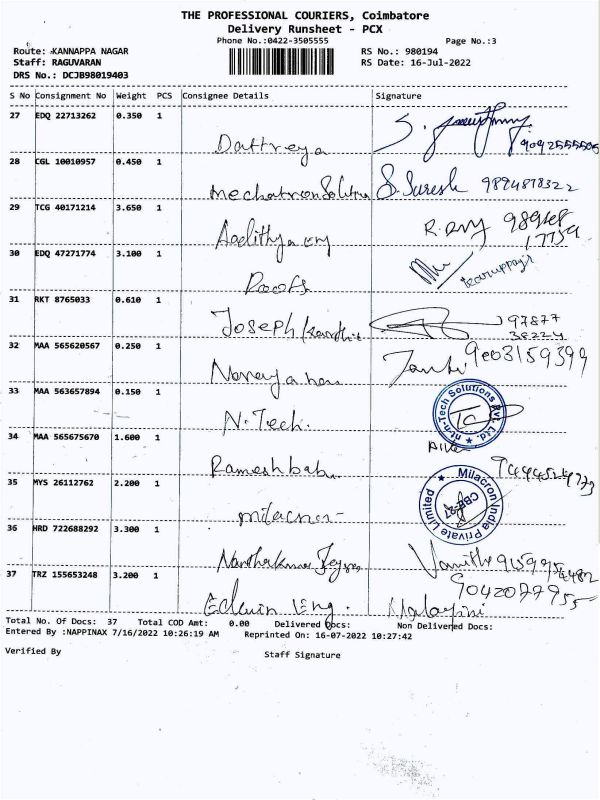 THE PROFESSIONAL COURIERS, Coimbatore
Delivery Runsheet - PCX
Phone No.:0422-3505555 Page No.:3
Route: KANNAPPA NAGAR RS No.: 980194
Staff: RAGUVARAN RS Date: 16-Jul-2022
DRS No.: DCJB98019403
S No Consignment No Weight PCS Consignee Details Signature
27 EDQ 22713262 0.350 1
Dattreya
28 CGL 10010957 0.450 1
Mechatron Solution S. Suresh 9894878322
29 TCG 40171214 3.650 1
30 EDQ 47271774 3.100 1
Roots
31 RKT 8765033 0.610 1
Joseph 97877
32 MAA 565620567 0.250 1
Narayanan 9003159399
33 MAA 563657894 0.150 1
N.Tech. nt-n-Tech Solutions Pvt. Ltd. ★
34 MAA 565675670 1.600 1
Rameshbabu
35 MYS 26112762 2.200 1
Milacron Milacron India Private Limited ★ CBE-27
36 HRD 722688292 3.300 1
37 TRZ 155653248 3.200 1
Edwin Eng. Malayini
Total No. Of Docs: 37 Total COD Amt: 0.00 Delivered Docs: Non Delivered Docs:
Entered By :NAPPINAX 7/16/2022 10:26:19 AM Reprinted On: 16-07-2022 10:27:42
Verified By Staff Signature